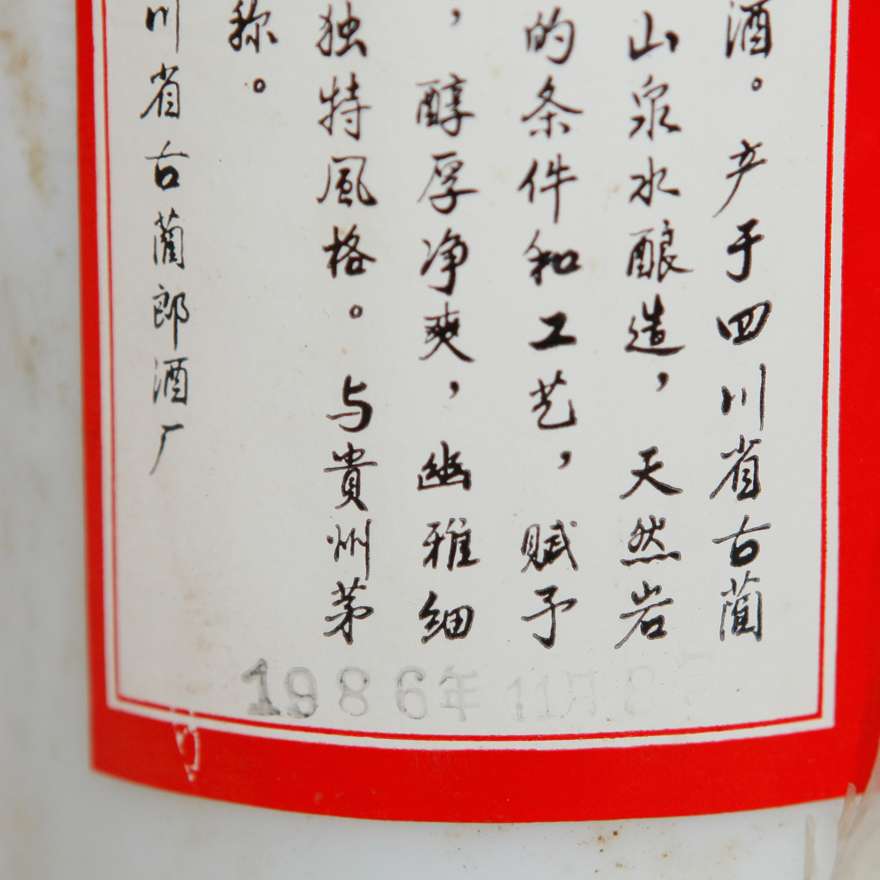 酒。产于四川省古蔺
山泉水酿造，天然岩
的条件和工艺，赋予
，醇厚净爽，幽雅细
独特風格。与貴州茅
称。
川省古蔺郎酒厂
1986年11月